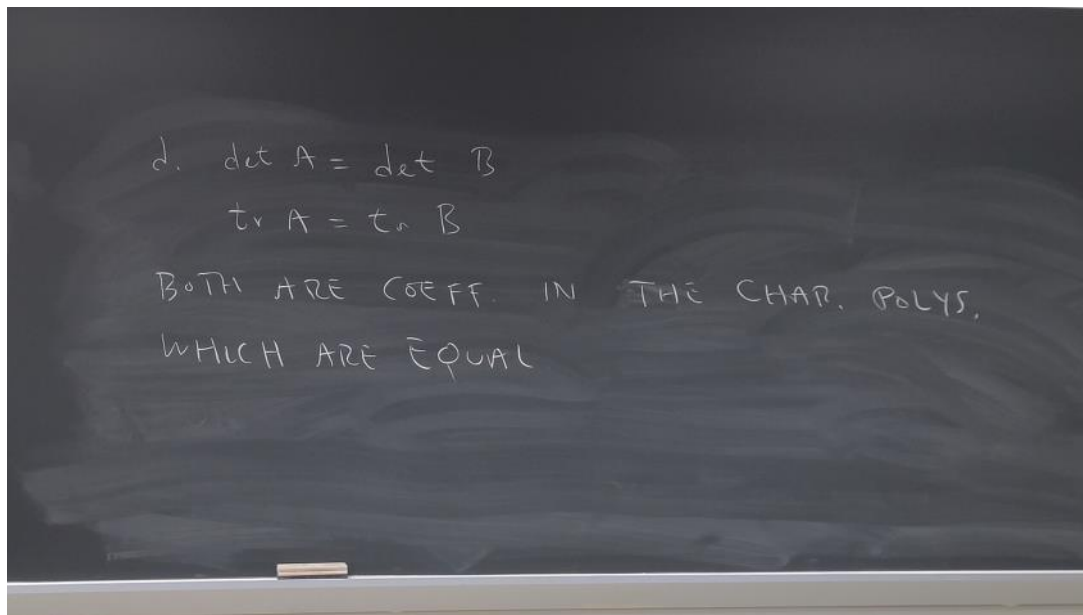 d. det A = det B
tr A = tr B
BOTH ARE COEFF. IN THE CHAR. POLYS.
WHICH ARE EQUAL